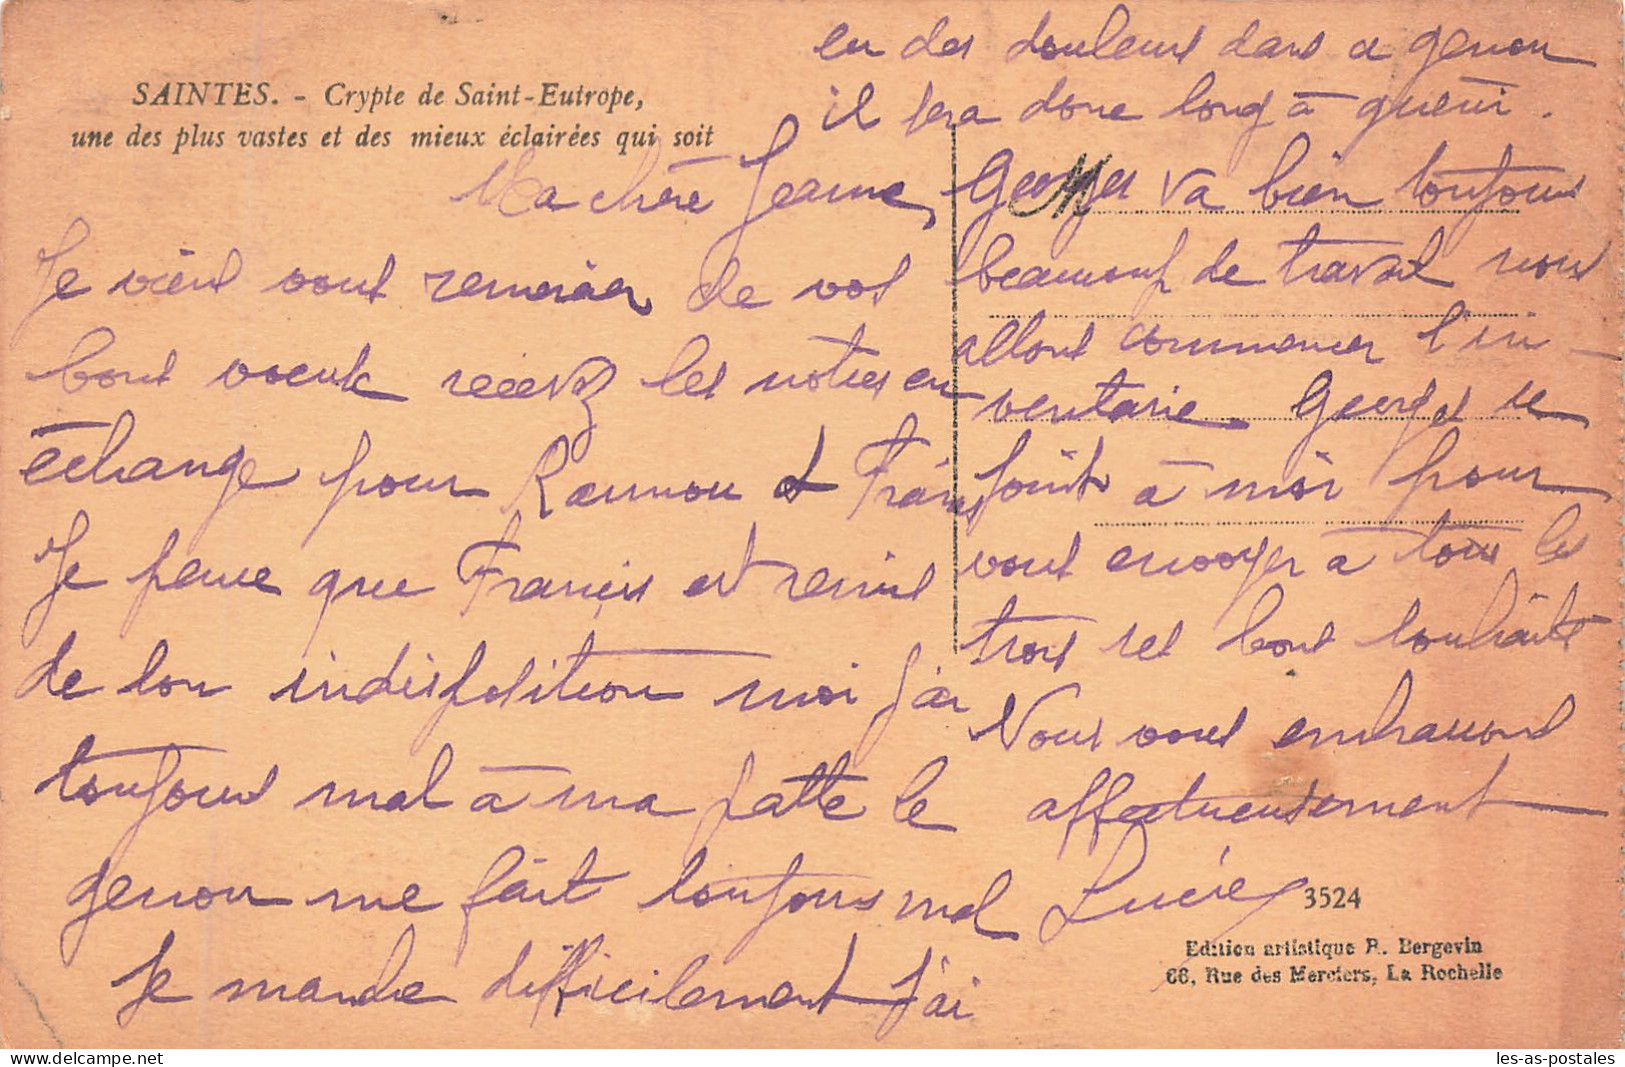 SAINTES. - Crypte de Saint-Eutrope,
une des plus vastes et des mieux éclairées qui soit
Ma chère Jeanne,
Je viens vous remercier de vos
bons voeux recevez les notres en
échange pour Raymon et Francis
Je pense que Francis est remis
de son indisposition moi j'ai
toujours mal à ma patte le
genou me fait toujours mal
Je marche difficilement j'ai
eu des douleurs dans ce genou
il sera donc long à guérir.
Georges va bien toujours
beaucoup de travail nous
allons commencer l'in-
ventaire. Georges se
joint à moi pour
vous envoyer à tous les
trois ses bons souhaits
Nous vous embrassons
affectueusement
Lucie
3524
Edition artistique R. Bergevin
66, Rue des Merciers, La Rochelle
les-as-postales